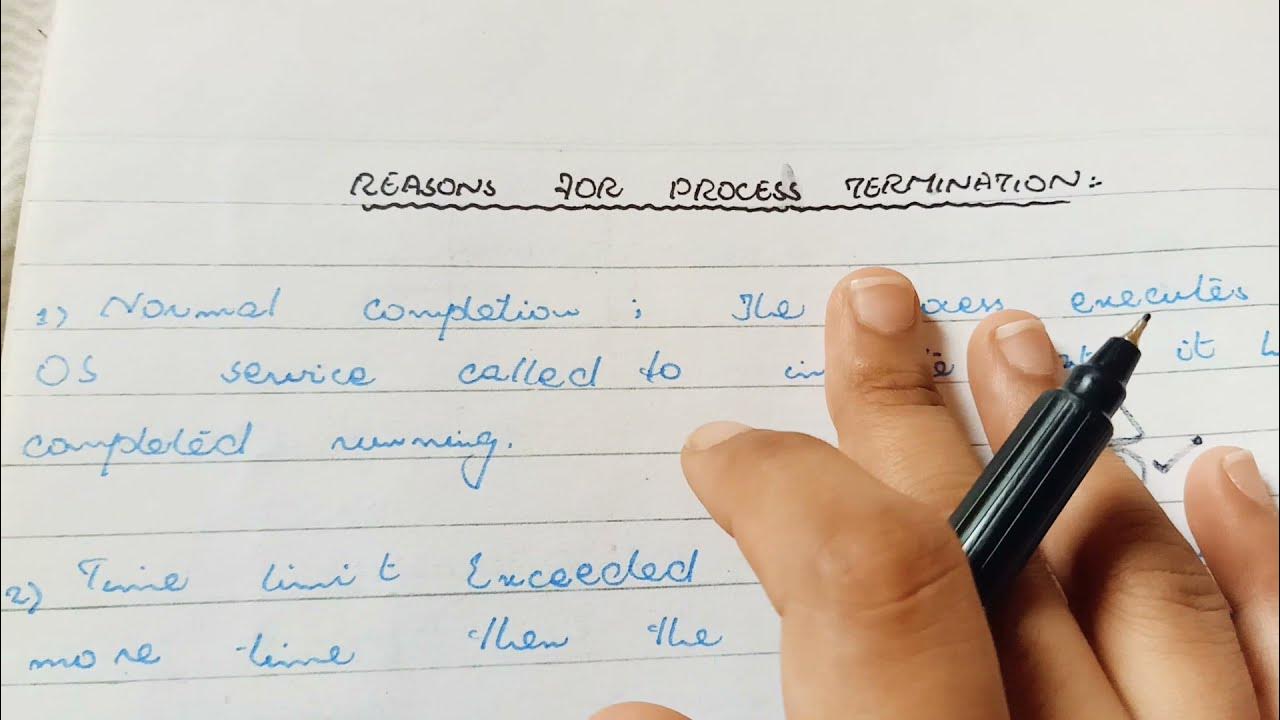 REASONS FOR PROCESS TERMINATION:-
1) Normal completion ; The executes
OS service called to it
completed running.
2) Time limit Exceeded
more time then the